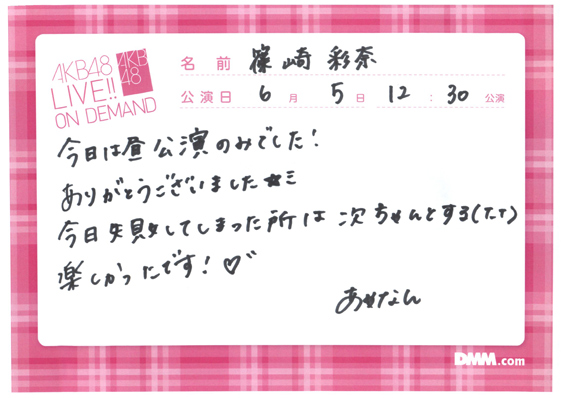 AKB48
LIVE!!
ON DEMAND
AKB
48
名前 篠崎 彩奈
公演日 6月 5日 12:30 公演
今日は昼公演のみでした!
ありがとうございました☆ミ
今日失敗してしまった所は次ちゃんとする(T.T)
楽しかったです!♡
あやなん
DMM.com